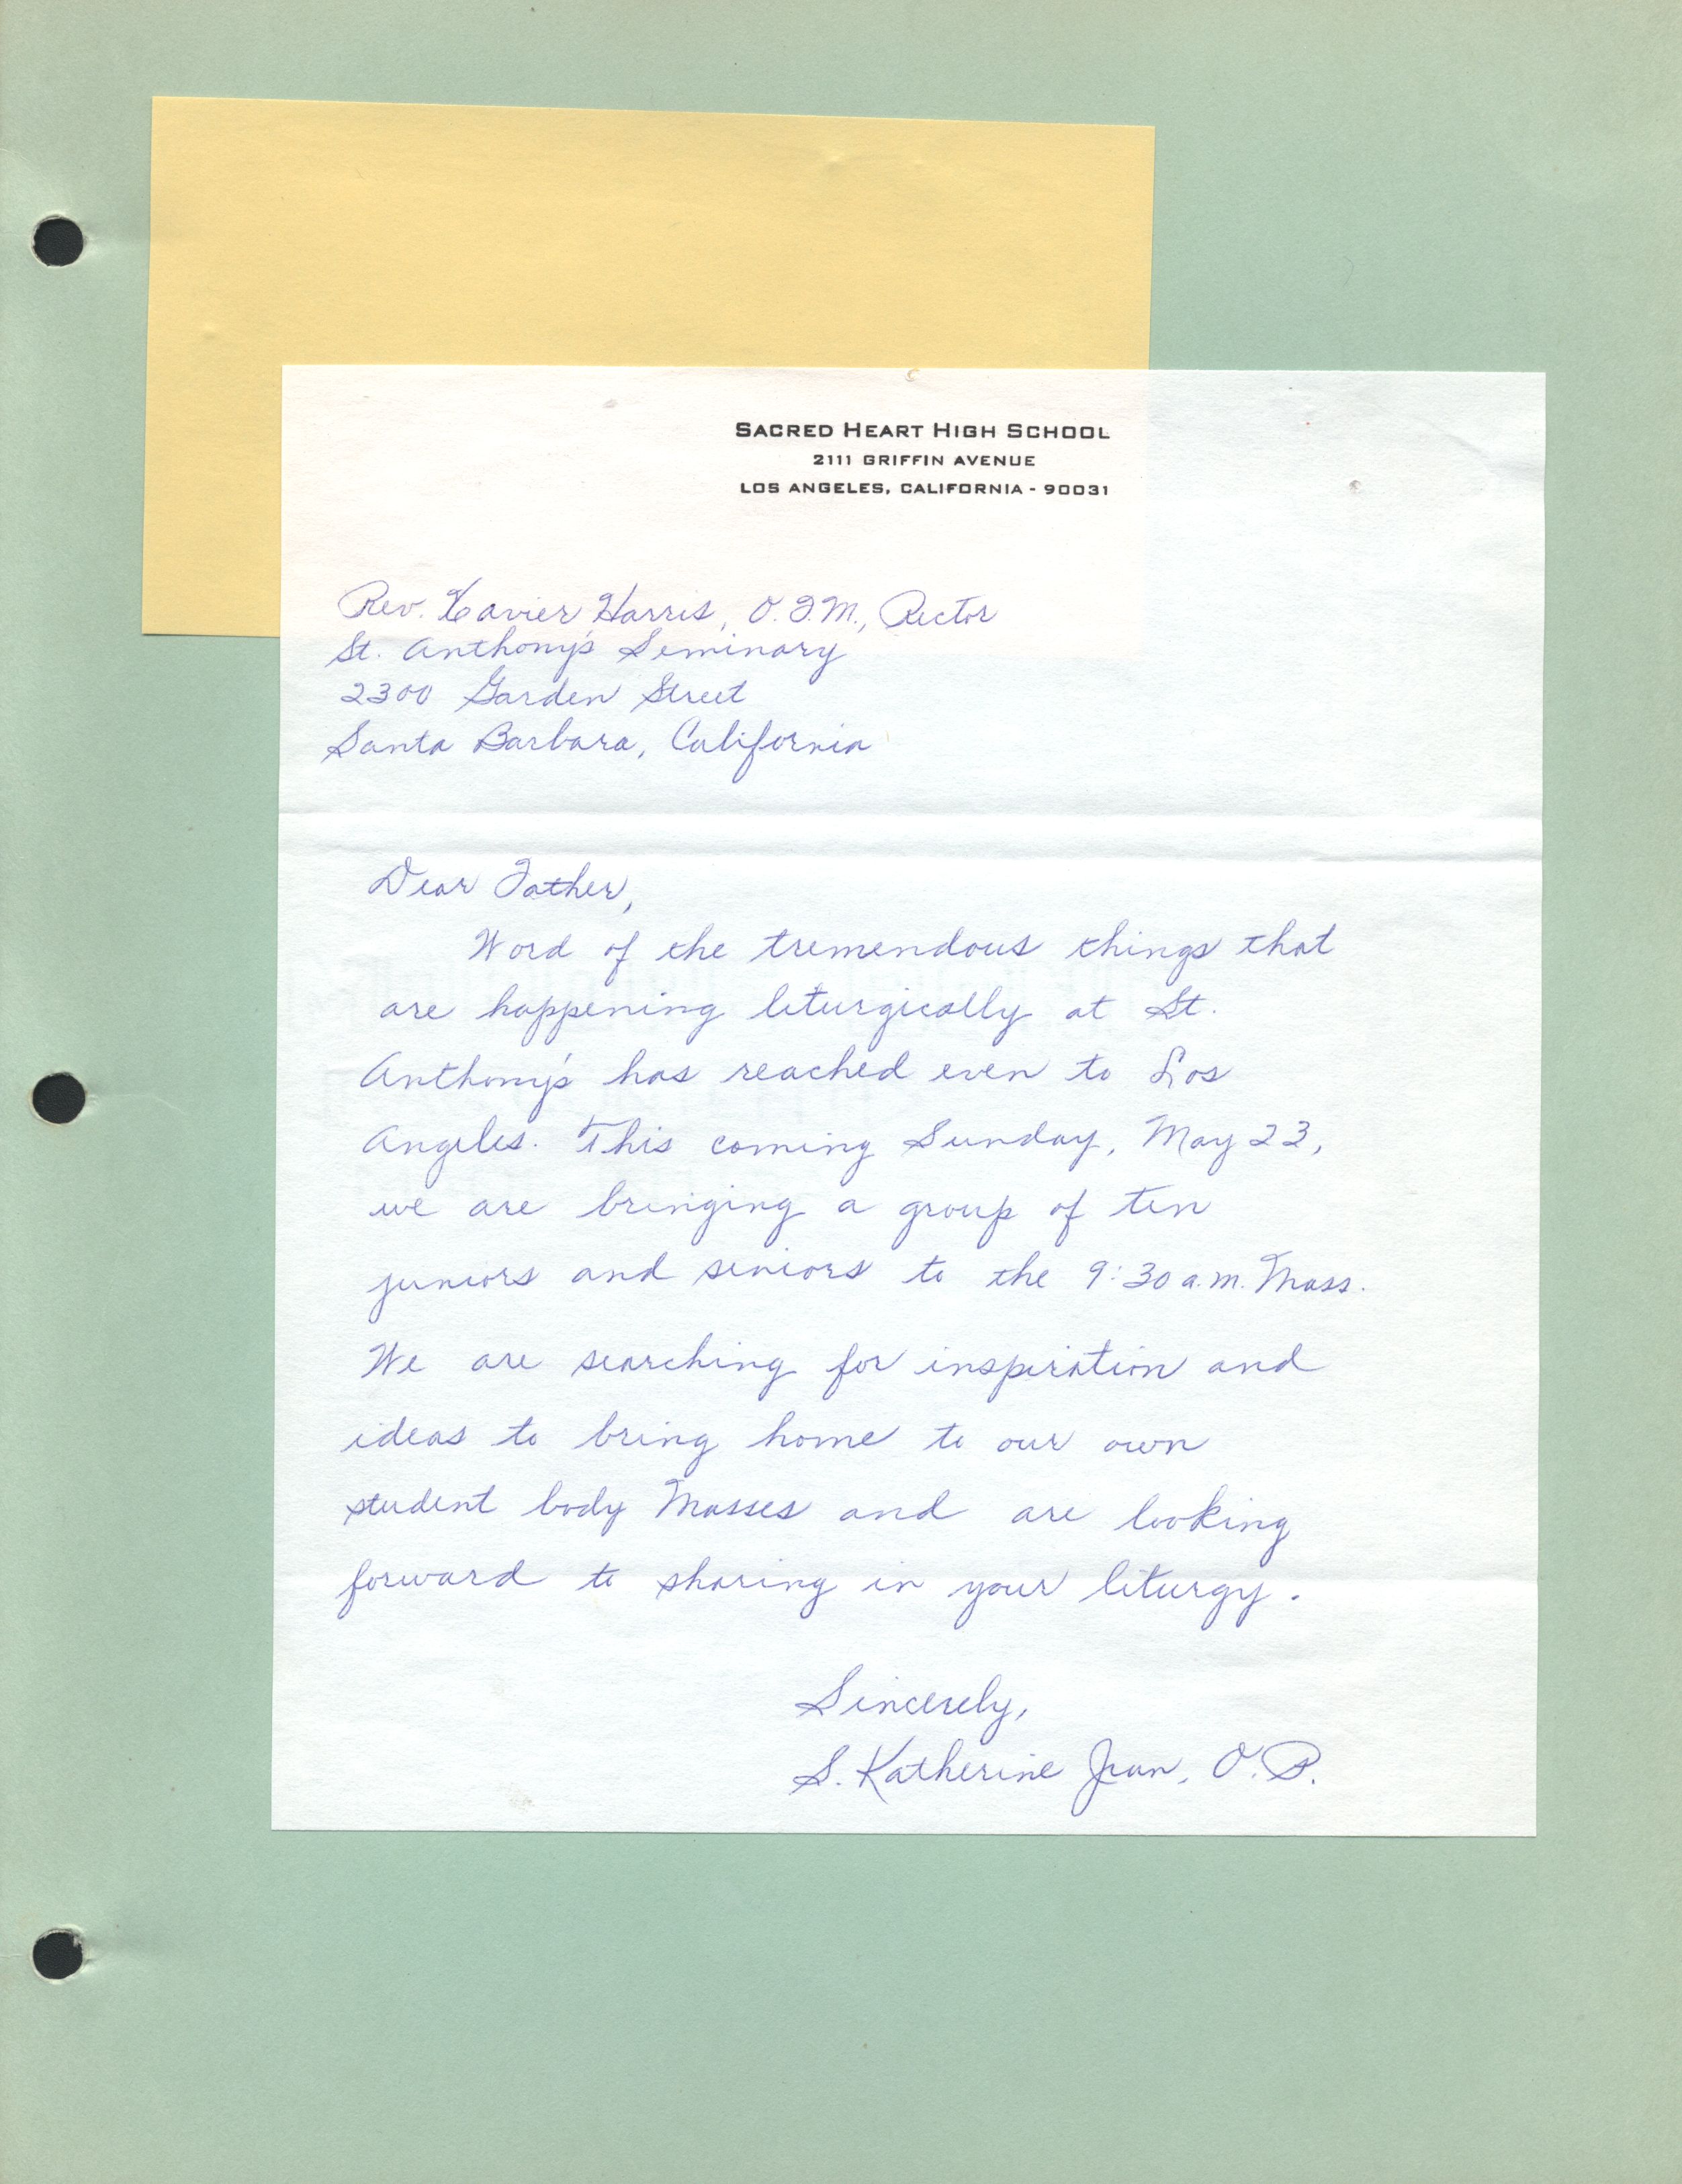 SACRED HEART HIGH SCHOOL
2111 GRIFFIN AVENUE
LOS ANGELES, CALIFORNIA - 90031
Rev. Xavier Harris, O.F.M., Rector
St. Anthony's Seminary
2300 Garden Street
Santa Barbara, California
Dear Father,
Word of the tremendous things that
are happening liturgically at St.
Anthony's has reached even to Los
Angeles. This coming Sunday, May 23,
we are bringing a group of ten
juniors and seniors to the 9:30 a.m. Mass.
We are searching for inspiration and
ideas to bring home to our own
student body Masses and are looking
forward to sharing in your liturgy.
Sincerely,
S. Katherine Jean, O.P.